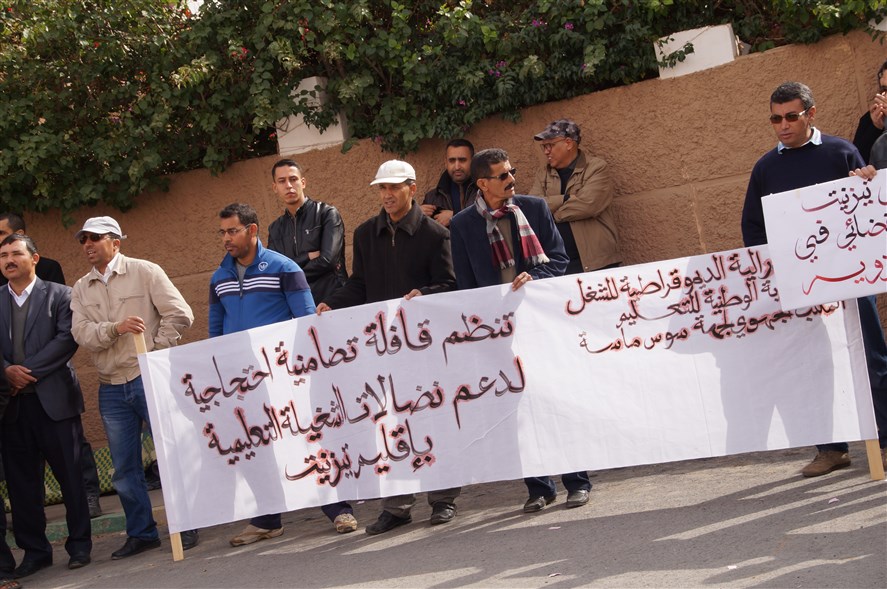 رالية الديموقراطية للشغل
بة الوطنية للتعليم
المكتب الجهوي لجهة سوس ماسة
تنظم قافلة تضامنية احتجاجية
لدعم نضالات الشغيلة التعليمية
بإقليم تيزنيت
تيزنيت
ضائي في
زوير